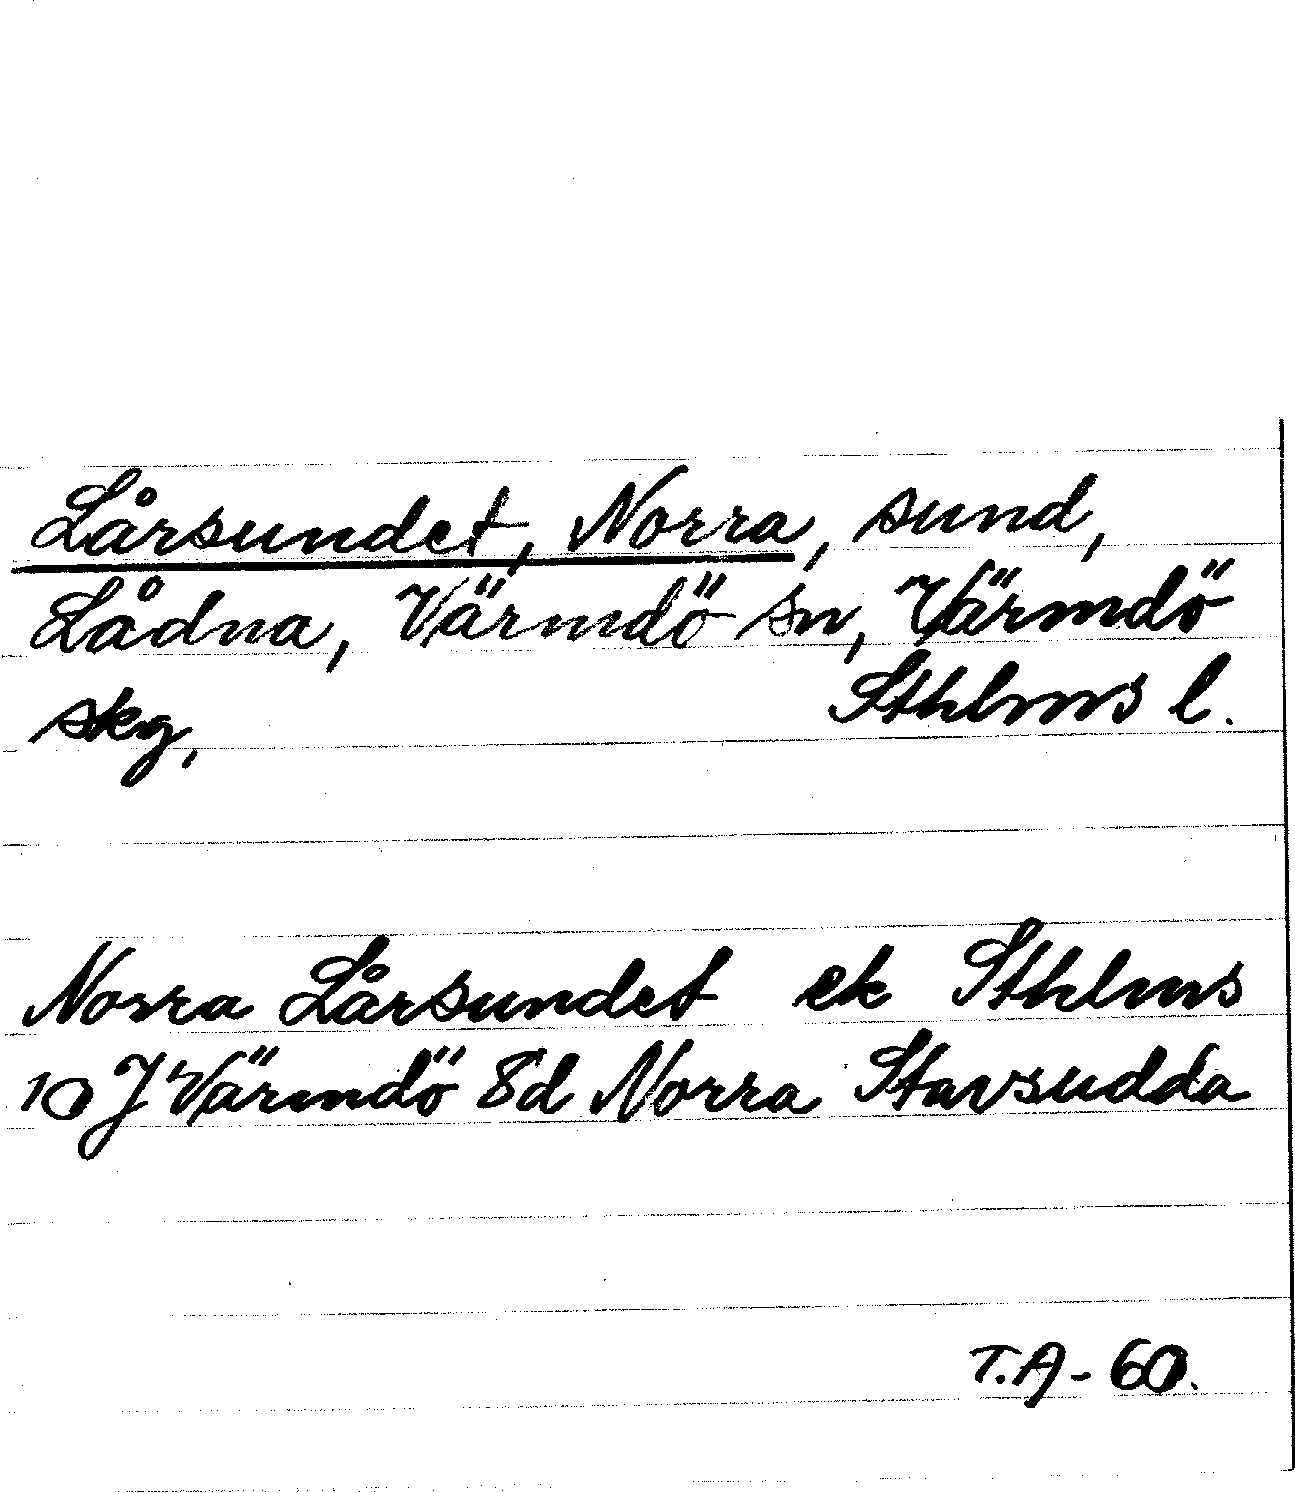 Lårsundet, Norra, sund,
Lådna, Värmdö sn, Värmdö
skg, Sthlms l.
Norra Lårsundet ek Sthlms
10 J Värmdö 8d Norra Stavsudda
T.A-60.